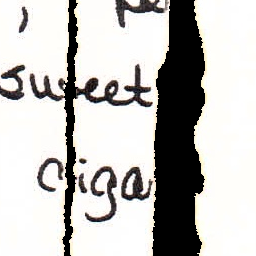 ,
sweet
ciga